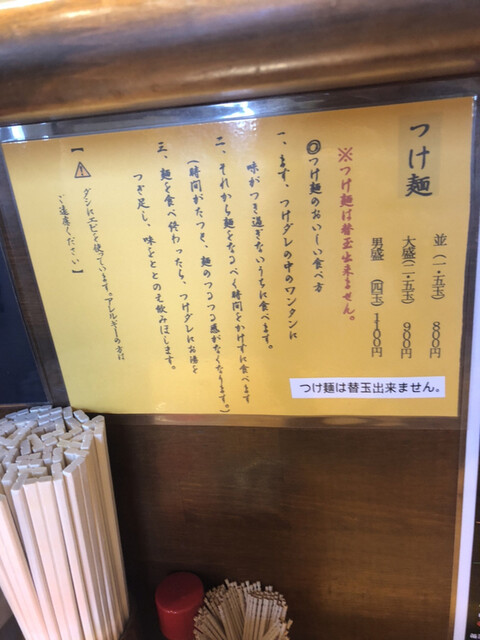 つけ麺
並（一・五玉） 800円
大盛（二・五玉） 900円
男盛 （四玉） 1100円
※つけ麺は替玉出来ません。
◎つけ麺のおいしい食べ方
一、まず、つけダレの中のワンタンに
味がつき過ぎないうちに食べます。
二、それから麺をなるべく時間をかけずに食べます
（時間がたつと、麺のつるつる感がなくなります。）
三、麺を食べ終わったら、つけダレにお湯を
つぎ足し、味をととのえ飲みほします。
【⚠ダシにエビを使っています。アレルギーの方は
ご遠慮ください】
つけ麺は替玉出来ません。